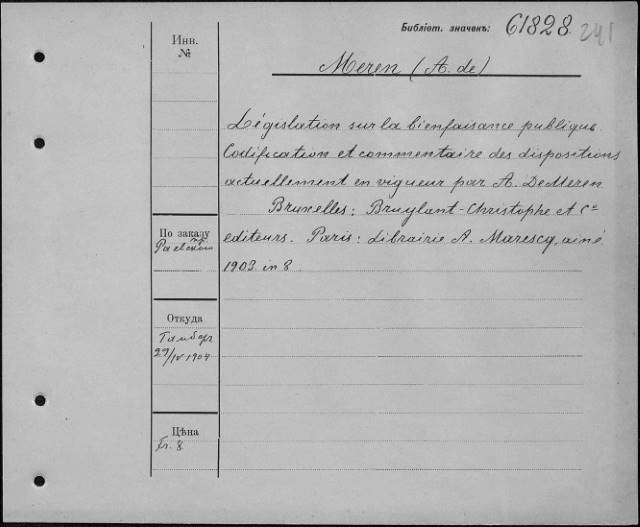 Библіот. значекъ: 61828 241
Инв.
№
Meren (A. de)
Législation sur la bienfaisance publique
Codification et commentaire des dispositions
actuellement en vigueur par A. DeMeren
Bruxelles: Bruylant-Christophe et Cie
editeurs. Paris: Librairie A. Marescq, ainé
1903 in 8
По заказу
Откуда
29/IV 1904
Цѣна
Fr. 8